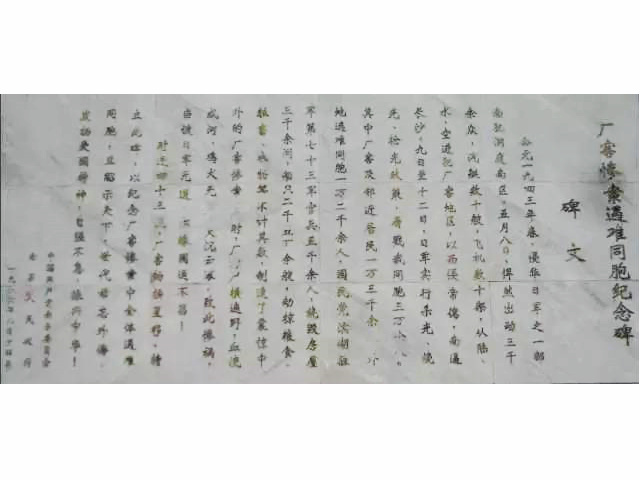 厂窖惨案遇难同胞纪念碑
碑文
公元一九四三年春,侵华日军之一部
南犯洞庭南区。五月八日,悍然出动三千
余众,汽艇数十艘,飞机数十架,从陆、
水、空进犯厂窖地区,以西侵常德,南逼
长沙。九日至十二日,日军实行杀光、烧
光、抢光政策,屠戮我同胞三万
其中厂窖及邻近居民一万三千余
地逃难同胞一万二千余人,国民党滨湖驻
军第七十三军官兵五千余人;烧毁房屋
三千余间,船只二千五百余艘,劫掠粮食、
牲畜、衣物等不计其数,制造了震惊中
外的厂窖惨案。时,厂 横遍野,血流
成河,鸡犬无 致此惨祸,
当诛日军无道 国运不昌!
时逾四十三 厂窖物换星移,特
立此碑,以纪念厂窖惨案中全体遇难
同胞,且昭示天下,世代毋忘外侮,
发扬爱国精神,自强不息,振兴中华!
委员会
人民政府
一九八六年八月